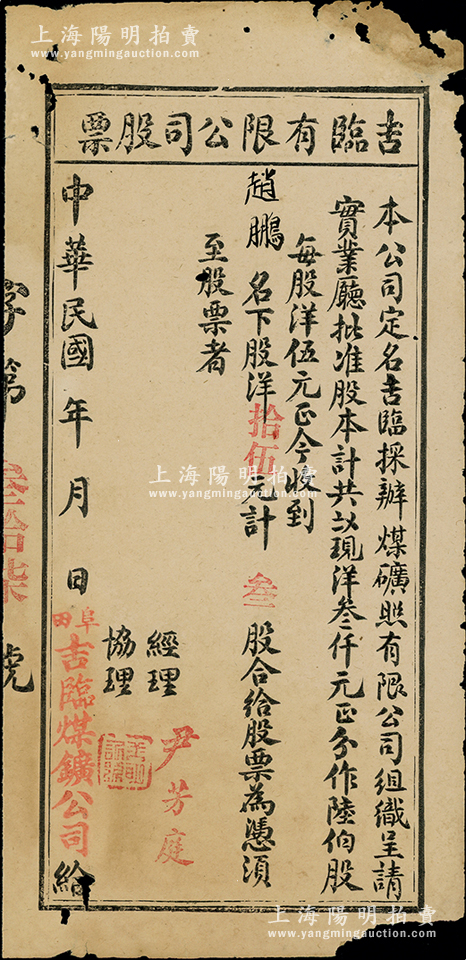 上海陽明拍賣
www.yangmingauction.com
吉臨有限公司股票
本公司定名吉臨採辦煤礦照有限公司組織呈請
實業廳批准股本計共以現洋叁仟元正分作陸伯股
每股洋伍元正今收到
趙鵬 名下股洋拾伍元計 叁 股合給股票為憑須
至股票者
經理
協理
尹芳庭
中華民國 年 月 日
阜田吉臨煤鑛公司 給
字第 叁拾柒 號
上海陽明拍賣
www.yangmingauction.com
上海陽明拍賣
www.yangmingauction.com